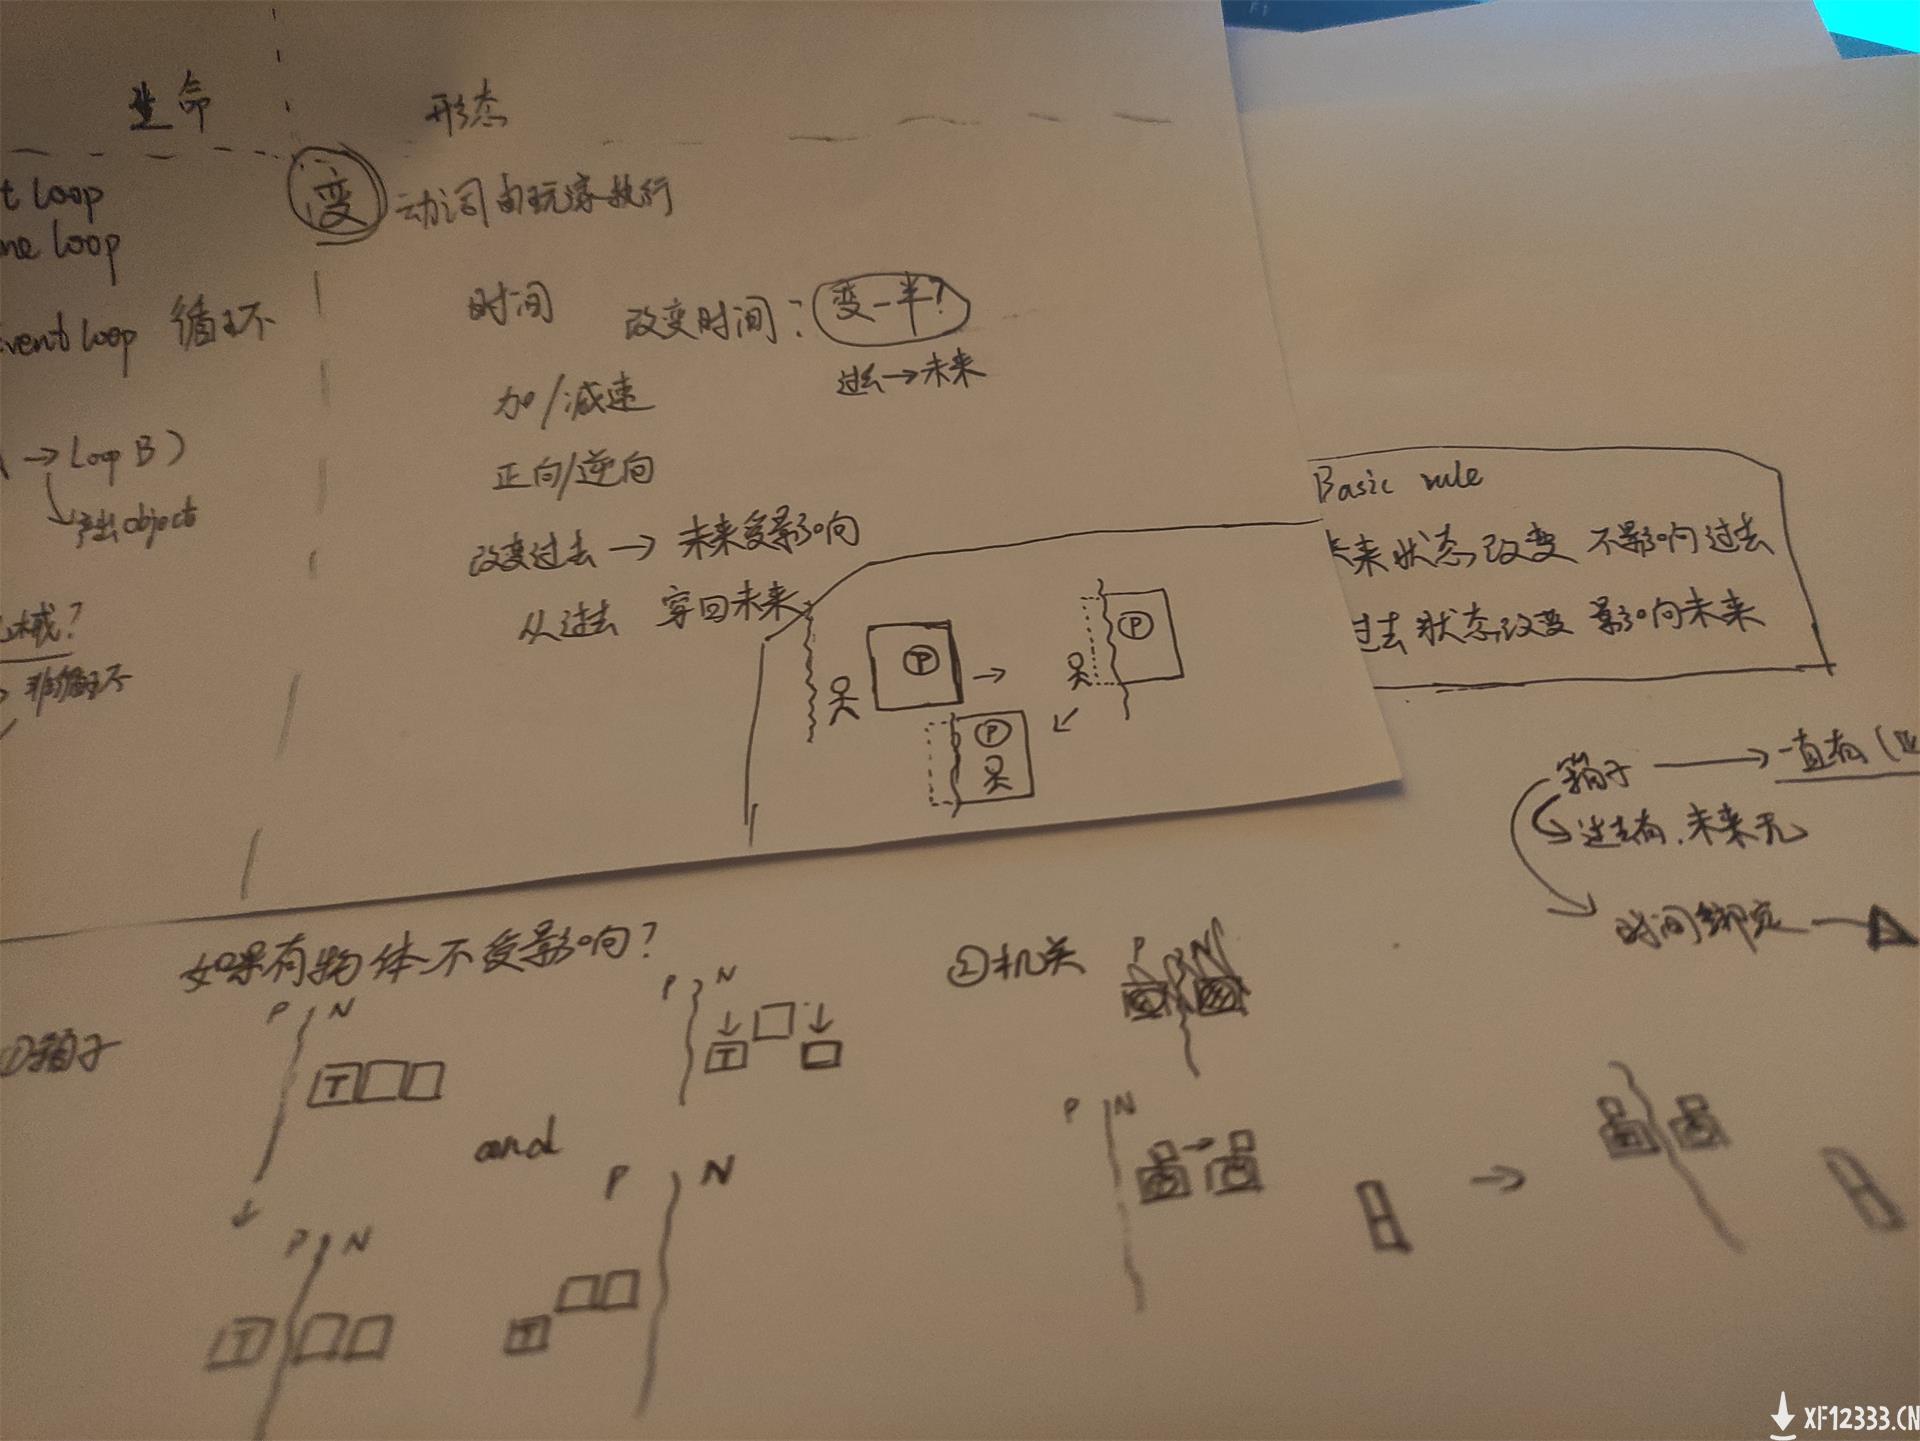 生命
形态
t loop
me loop
vent loop 循环
→ Loop B)
产出object
械?
非循环
变 动词由玩家执行
时间 改变时间: 变一半?
过去→未来
加/减速
正向/逆向
改变过去→未来受影响
从过去 穿回未来
P
P
P
Basic rule
未来状态改变 不影响过去
过去状态改变 影响向未来
箱子 → 一直有(
过去有.未来无
时间绑定
如果有物体不受影响?
①箱子
P N
T
P N
T
and
P N
T
P N
T
②机关
P N
P N
F1
XF12333.CN